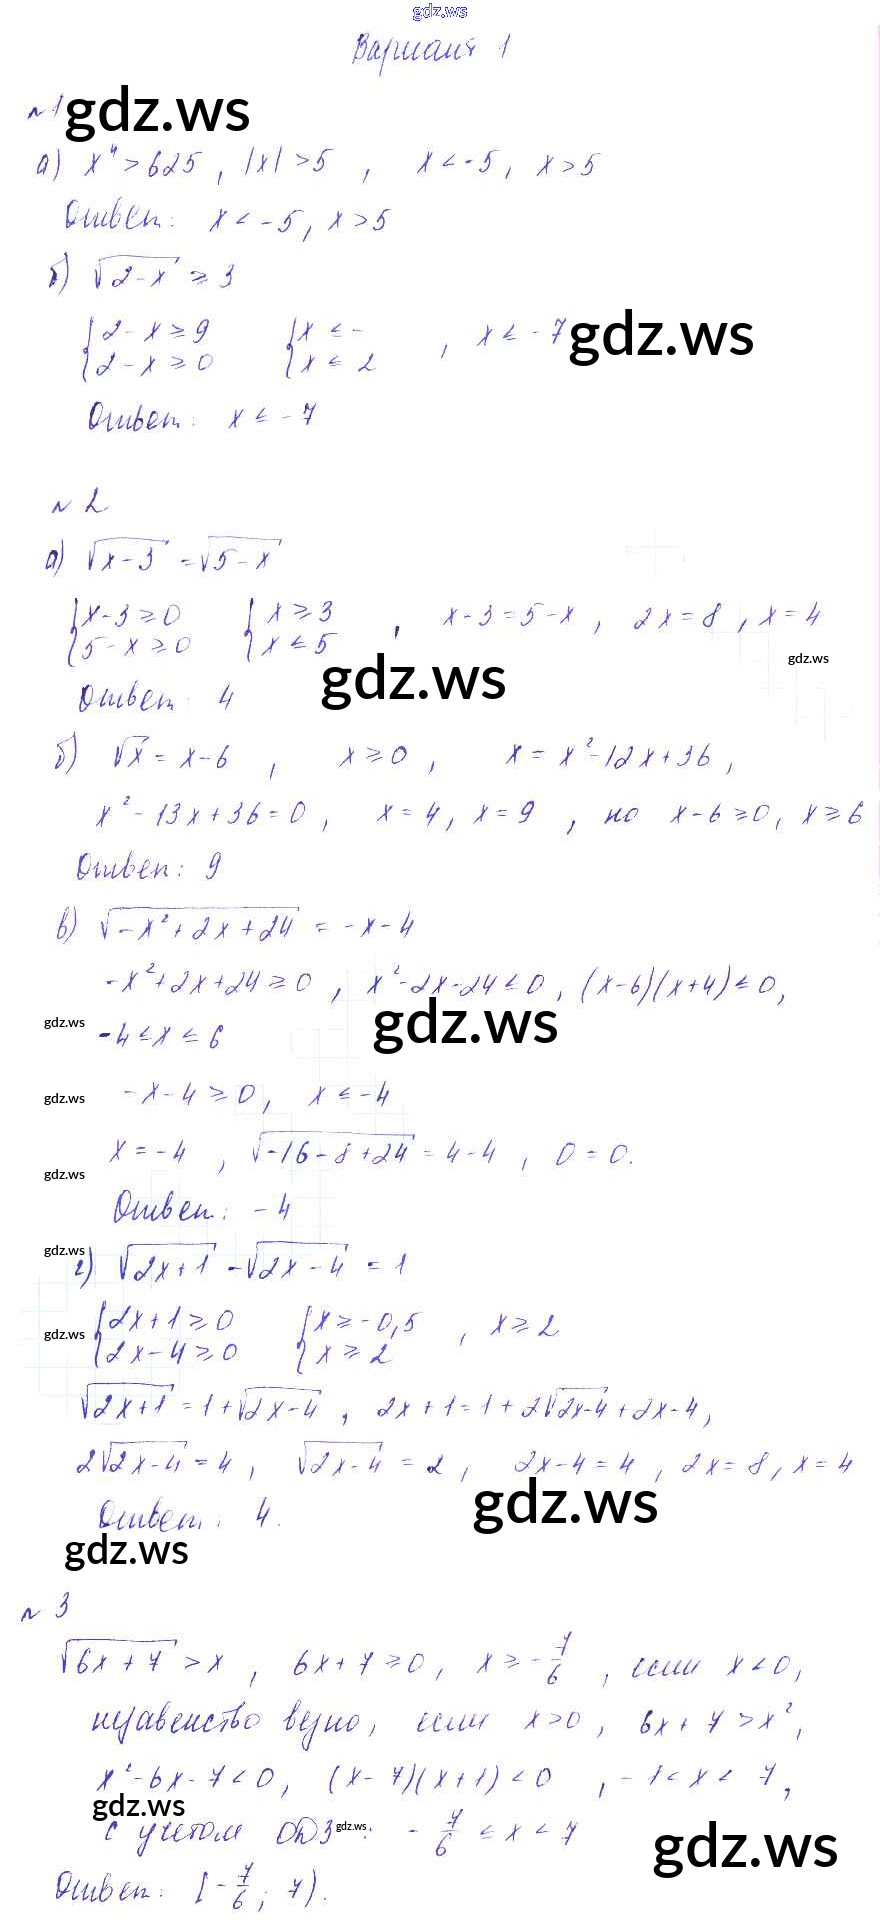 gdz.ws
Вариант 1
№ 1 gdz.ws
а) x⁴ > 625 , |x| > 5 , x < -5 , x > 5
Ответ: x < -5 , x > 5
б) √(2-x) ≥ 3
{ 2-x ≥ 9 { x ≤ - , x ≤ -7 gdz.ws
{ 2-x ≥ 0 { x ≤ 2
Ответ: x ≤ -7
№ 2
а) √(x-3) = √(5-x)
{ x-3 ≥ 0 { x ≥ 3 , x-3 = 5-x , 2x = 8 , x = 4
{ 5-x ≥ 0 { x ≤ 5
gdz.ws
gdz.ws
Ответ: 4
б) √x = x-6 , x ≥ 0 , x = x²-12x+36 ,
x²-13x+36=0 , x=4 , x=9 , но x-6 ≥ 0 , x ≥ 6
Ответ: 9
в) √(-x²+2x+24) = -x-4
-x²+2x+24 ≥ 0 , x²-2x-24 ≤ 0 , (x-6)(x+4) ≤ 0 ,
gdz.ws gdz.ws
-4 ≤ x ≤ 6
gdz.ws -x-4 ≥ 0 , x ≤ -4
x = -4 , √(-16-8+24) = 4-4 , 0 = 0.
gdz.ws
Ответ: -4
gdz.ws
г) √(2x+1) - √(2x-4) = 1
{ 2x+1 ≥ 0 { x ≥ -0,5 , x ≥ 2
gdz.ws
{ 2x-4 ≥ 0 { x ≥ 2
√(2x+1) = 1+√(2x-4) , 2x+1 = 1+2√(2x-4)+2x-4 ,
2√(2x-4) = 4 , √(2x-4) = 2 , 2x-4 = 4 , 2x = 8 , x = 4
gdz.ws
Ответ: 4.
gdz.ws
№ 3
√(6x+7) > x , 6x+7 ≥ 0 , x ≥ -7/6 , если x < 0 ,
неравенство верно, если x > 0 , 6x+7 > x² ,
x²-6x-7 < 0 , (x-7)(x+1) < 0 , -1 < x < 7 ,
gdz.ws
с учетом ОДЗ gdz.ws : -7/6 ≤ x < 7
gdz.ws
Ответ: [-7/6 ; 7).